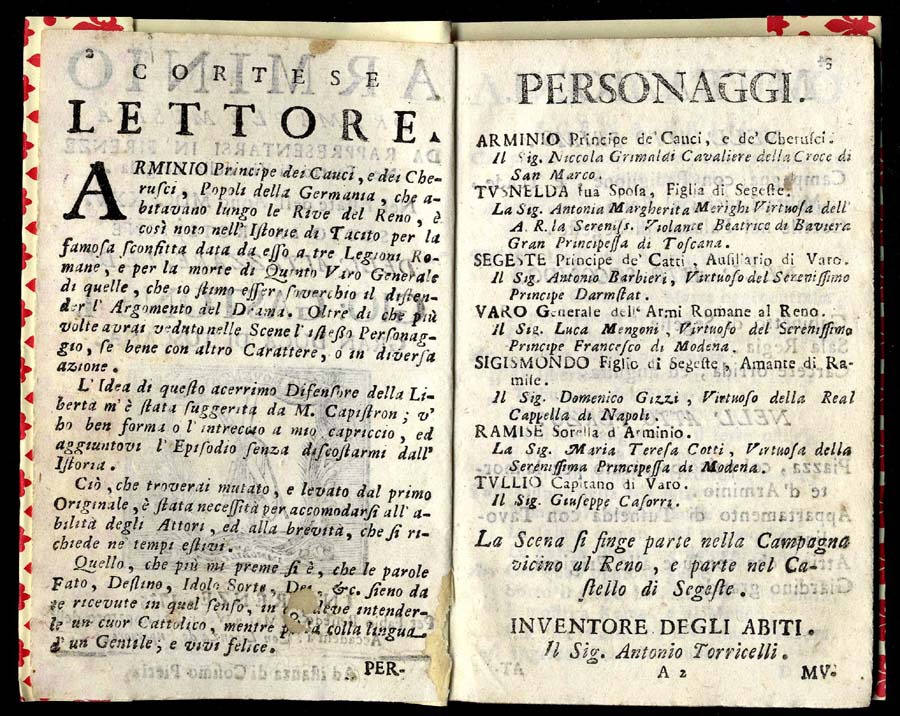 2
CORTESE
LETTORE.
ARMINIO Principe dei Cauci, e dei Che-
rusci, Popoli della Germania, che a-
bitavano lungo le Rive del Reno, è
così noto nell' Istorie di Tacito per la
famosa sconfitta data da esso a tre Legioni Ro-
mane, e per la morte di Quinto Viro Generale
di quelle, che io stimo esser soverchio il disten-
der l' Argomento del Drama. Oltre di che più
volte avrai veduto nelle Scene l' istesso Personag-
gio, se bene con altro Carattere, o in diversa
azione.
L' Idea di questo acerrimo Difensore della Li-
berta m'è stata suggerita da M. Capistron; v'
ho ben forma o l'intreccio a mio capriccio, ed
aggiuntovi l' Episodio senza discostarmi dall'
Istoria.
Ciò, che troverai mutato, e levato dal primo
Originale, è stata necessità per accomodarsi all' a-
bilità degli Attori, ed alla brevità, che si ri-
chiede ne' tempi estivi.
Quello, che più mi preme si è, che le parole
Fato, Destino, Idolo Sorte, &c. sieno da
te ricevute in quel senso, in deve intender-
le un cuor Cattolico, mentre colla lingua
d'un Gentile; e vivi felice.
PER-
3
PERSONAGGI.
ARMINIO Principe de' Cauci, e de' Cherusci.
Il Sig. Niccola Grimaldi Cavaliere della Croce di
San Marco.
TVSNELDA sua Sposa, Figlia di Segeste.
La Sig. Antonia Margherita Merighi Virtuosa dell'
A. R. la Sereniss. Violante Beatrice di Baviera
Gran Principessa di Toscana.
SEGESTE Principe de' Catti, Ausiliario di Varo.
Il Sig. Antonio Barbieri, Virtuoso del Serenissimo
Principe Darmstat.
VARO Generale dell' Armi Romane al Reno.
Il Sig. Luca Mengoni, Virtuoso del Serenissimo
Principe Francesco di Modena.
SIGISMONDO Figlio di Segeste, Amante di Ra-
mise.
Il Sig. Domenico Gizzi, Virtuoso della Real
Cappella di Napoli.
RAMISE Sorella d Arminio.
La Sig. Maria Teresa Cotti, Virtuosa della
Serenissima Principessa di Modena.
TVLLIO Capitano di Varo.
Il Sig. Giuseppe Casorri.
La Scena si finge parte nella Campagna
vicino al Reno, e parte nel Ca-
stello di Segeste.
INVENTORE DEGLI ABITI.
Il Sig. Antonio Torricelli.
A 2
MV-